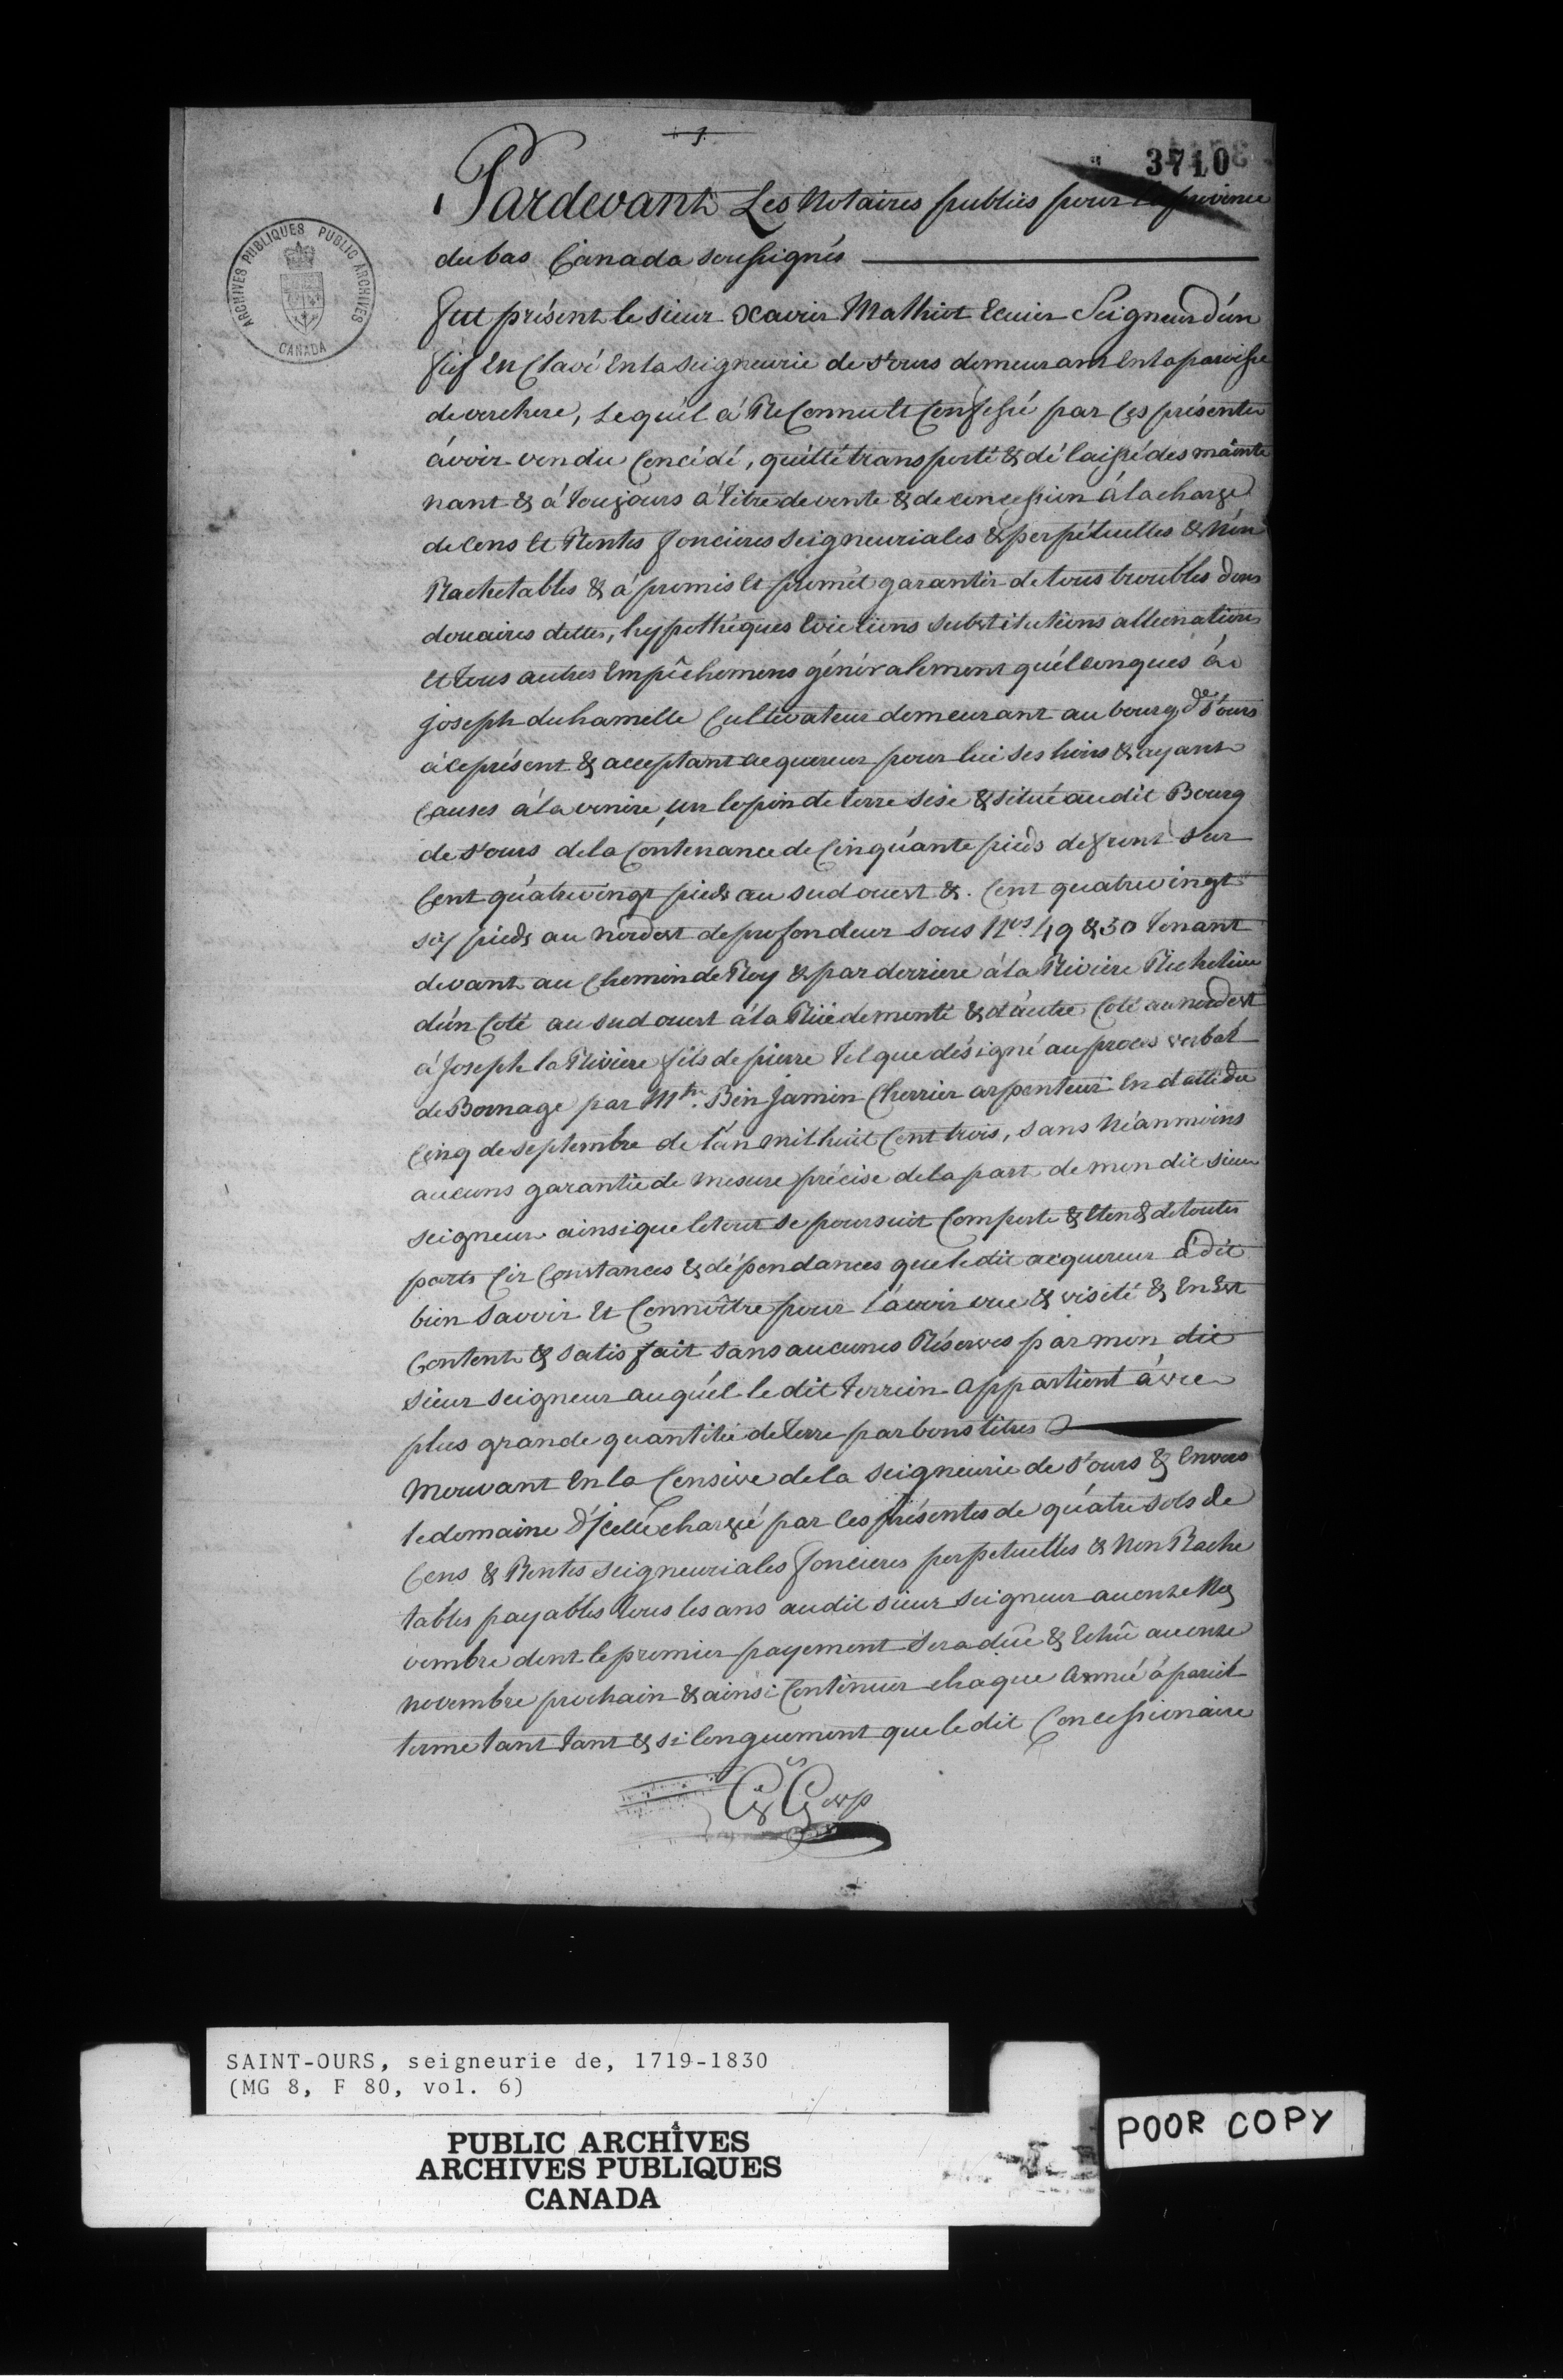 3710
Pardevant Les Notaires publics pour la province
du bas Canada soussignés
fut présent le sieur Xavier Mathiot Ecuier Seigneur d'ún
fief En Clavé En la seigneurie de st ours demeurant En la paroisse
de verchere, Lequ'el á ReConnu et Confessé par Ces présentes
ávoir vendu Concédé, quitté transporté & dé laissé dès mainte
nant & á toujours á titre de vente & de concession á la charge
de Cens Et Rentes foncieres Seigneuriales & perpétuelles & Nón
Rachetables & á promis et promèt garantir de tous troubles dons
douaires dettes, hypothéques Evictions substitutions allienations
Et tous autres Empêchemens généralement quélconques á
joseph duhamelle Cultivateur demeurant au bourg de st ours
á ce présent & acceptant acquereur pour lui ses hoirs & ayant
Causes á la venire, un lopin de terre sise & situé au dit Bourg
de st ours de la Contenance de Cinquánte pieds de front sur
Cent quátrevingt pieds au sud ouest &. Cent quatrevingt
six pieds au nordest de profondeur sous Nos. 49 & 50 tenant
devant au Chemin de Roy & par derriere á la Riviere Richelieu
dún Coté au sud ouest á la Rüe de monté & d'áutre Coté au nordest
á Joseph la Riviere fils de pierre tel que désigné au procès verbal
de Bornage par Mtr. Bénjamin Cherrier arpenteur En datte du
Cinq de septembre de l'án mil huit Cent trois, sans Néanmoins
aucuns garantie de mesure précise de la part de mon dit sieur
seigneur ainsi que le tout se poursuit Comporte & Etend de toutes
parts Cir Constances & dépendances que le dit acquereur á dit
bien savoir Et Connoître pour l'ávoir vue & visité & En Est
Content & satis fait sans aucunes Réserves par mon dit
sieur seigneur auquél le dit terrein appartient ávec
plus grande quantité de terre par bons titres
Mouvant En la Censive de la seigneurie de st ours & Envers
le domaine d'jcelle chargé par ces présentes de quátre sols de
Cens & Rentes seigneuriales foncieres perpetuelles & Non Rache
tables payables tous les ans au dit sieur seigneur au onze No
vembre dont le premier payement sera dûe & Echû au onze
novembre prochain & ainsi Continuer chaque année á pareil
terme tant tant & si longuement que le dit Concessionaire
ARCHIVES PUBLIQUES PUBLIC ARCHIVES
CANADA
SAINT-OURS, seigneurie de, 1719-1830
(MG 8, F 80, vol. 6)
PUBLIC ARCHIVES
ARCHIVES PUBLIQUES
CANADA
POOR COPY